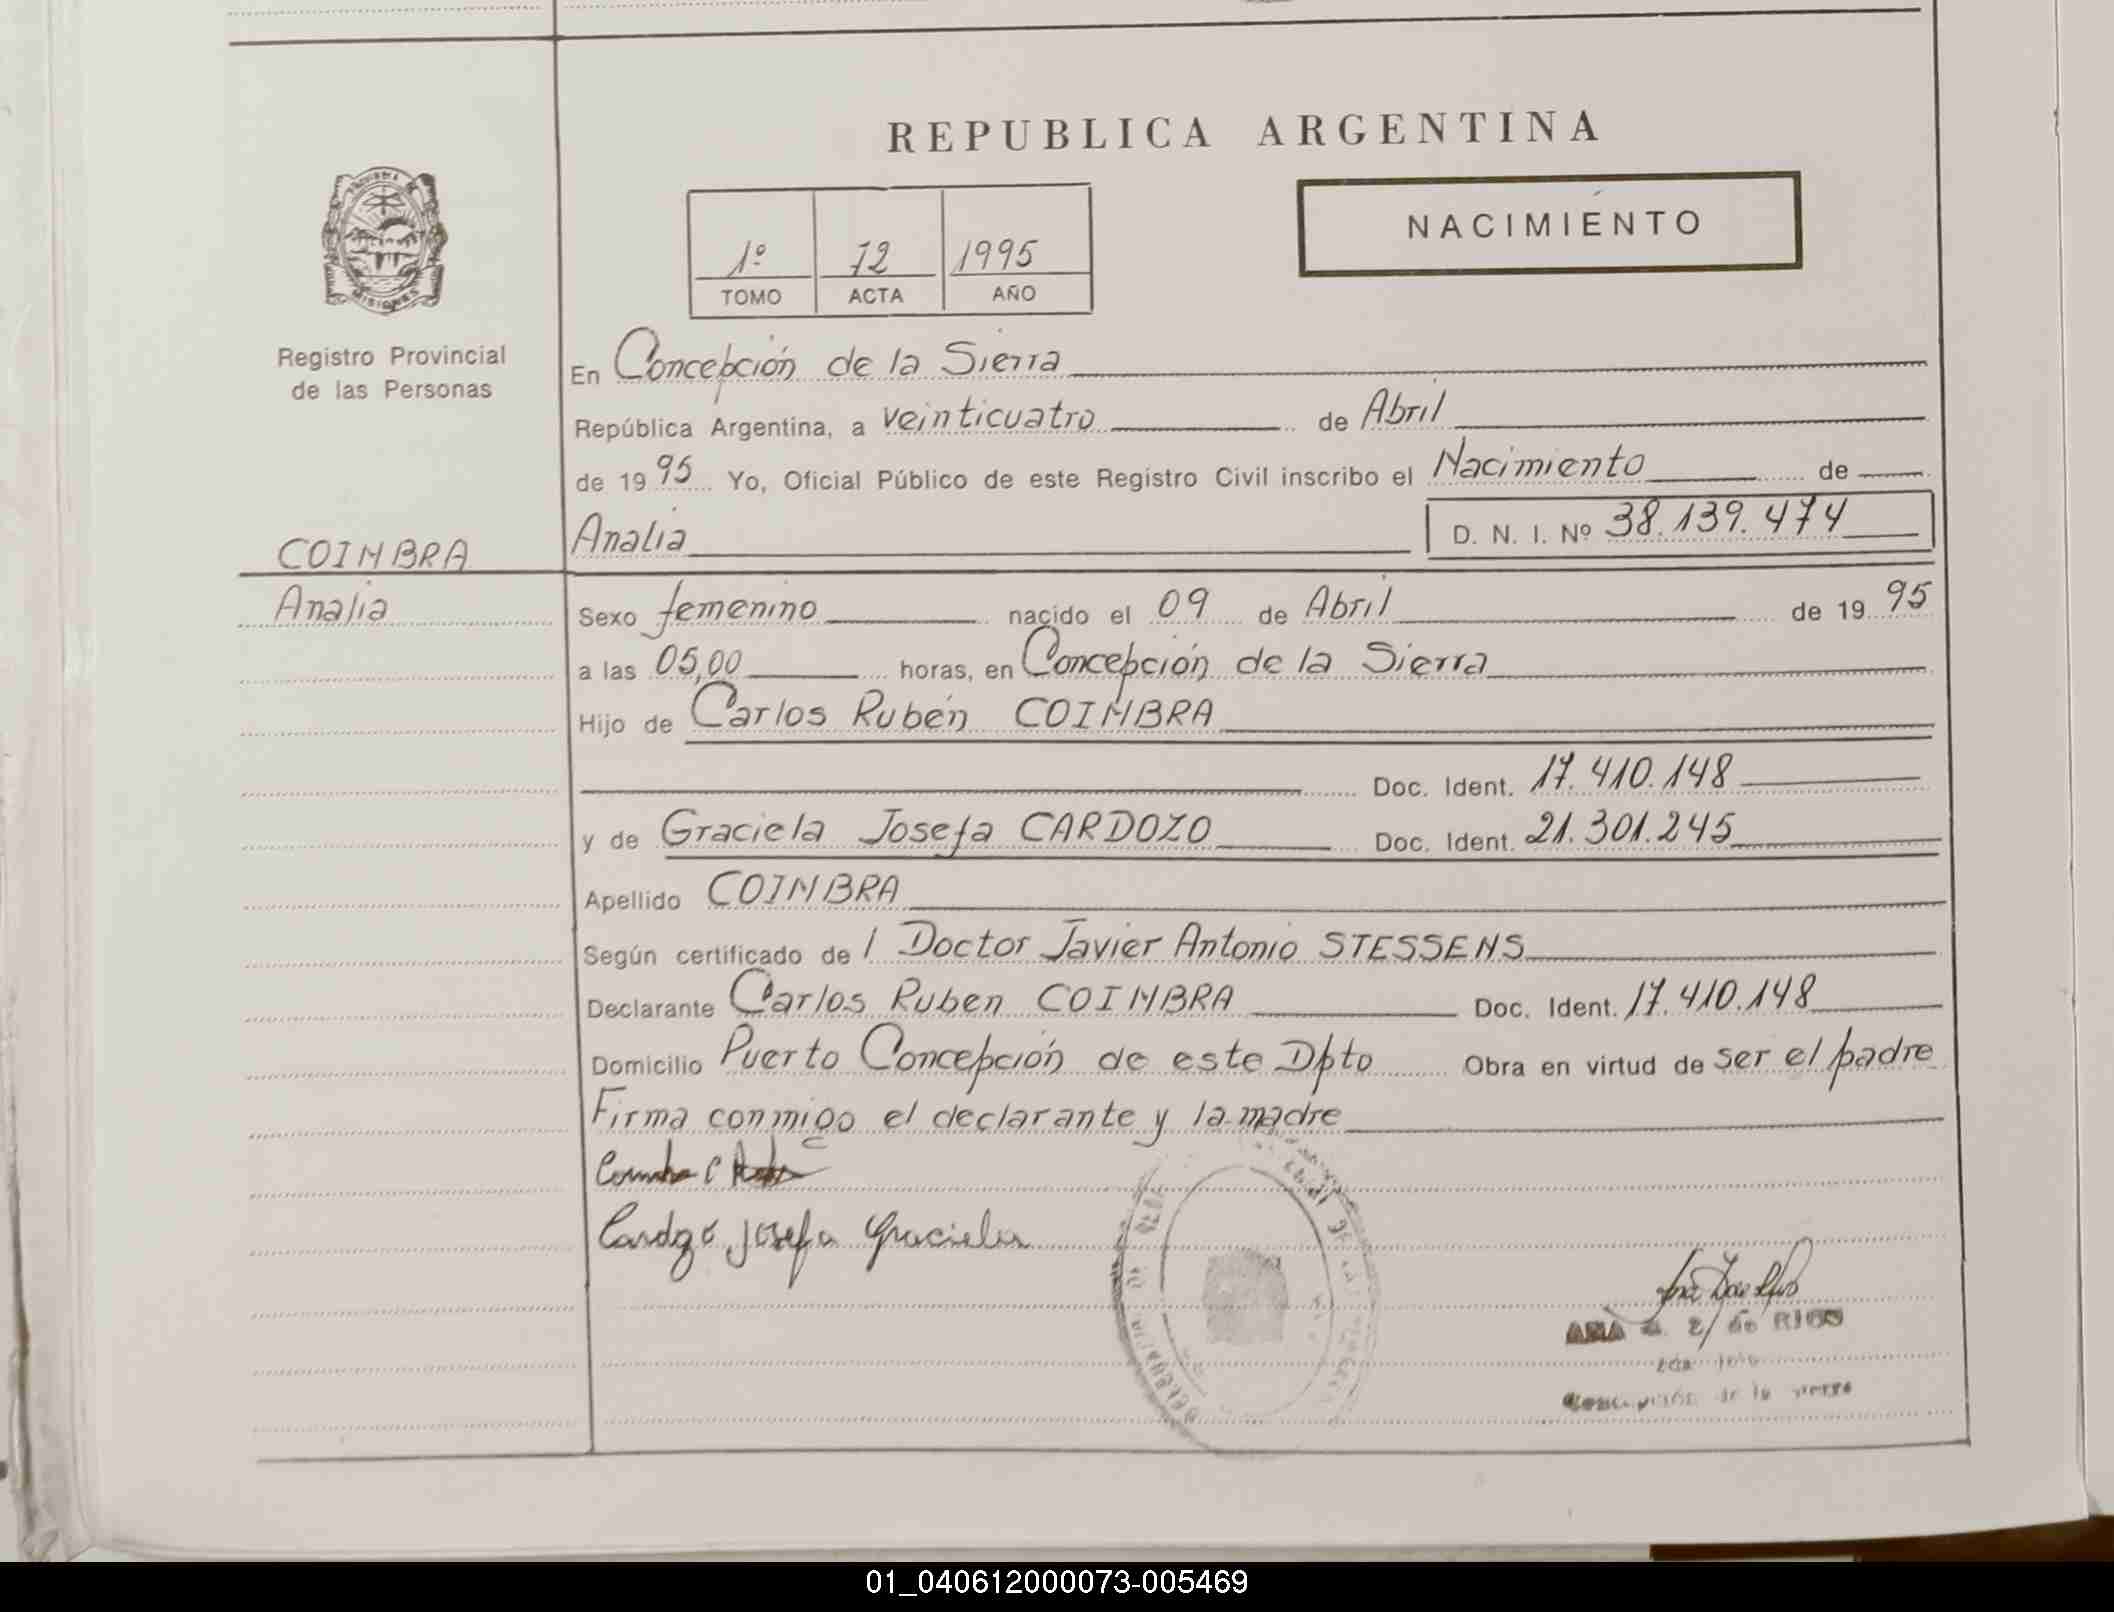 REPUBLICA ARGENTINA
NACIMIENTO
1º 72 1995
TOMO ACTA AÑO
PROVINCIA DE
MISIONES
Registro Provincial
de las Personas
En Concepción de la Sierra
República Argentina, a veinticuatro de Abril
de 1995 Yo, Oficial Público de este Registro Civil inscribo el Nacimiento de
Analia D. N. I. Nº 38.139.474
COIMBRA
Analia
Sexo femenino nacido el 09 de Abril de 1995
a las 05,00 horas, en Concepción de la Sierra
Hijo de Carlos Rubén COIMBRA
Doc. Ident. 17.410.148
y de Graciela Josefa CARDOZO Doc. Ident. 21.301.245
Apellido COIMBRA
Según certificado de l Doctor Javier Antonio STESSENS
Declarante Carlos Ruben COIMBRA Doc. Ident. 17.410.148
Domicilio Puerto Concepción de este Dpto Obra en virtud de ser el padre
Firma conmigo el declarante y la madre
Cardozo Josefa Graciela
ANA
Concepción de la Sierra
01_040612000073-005469